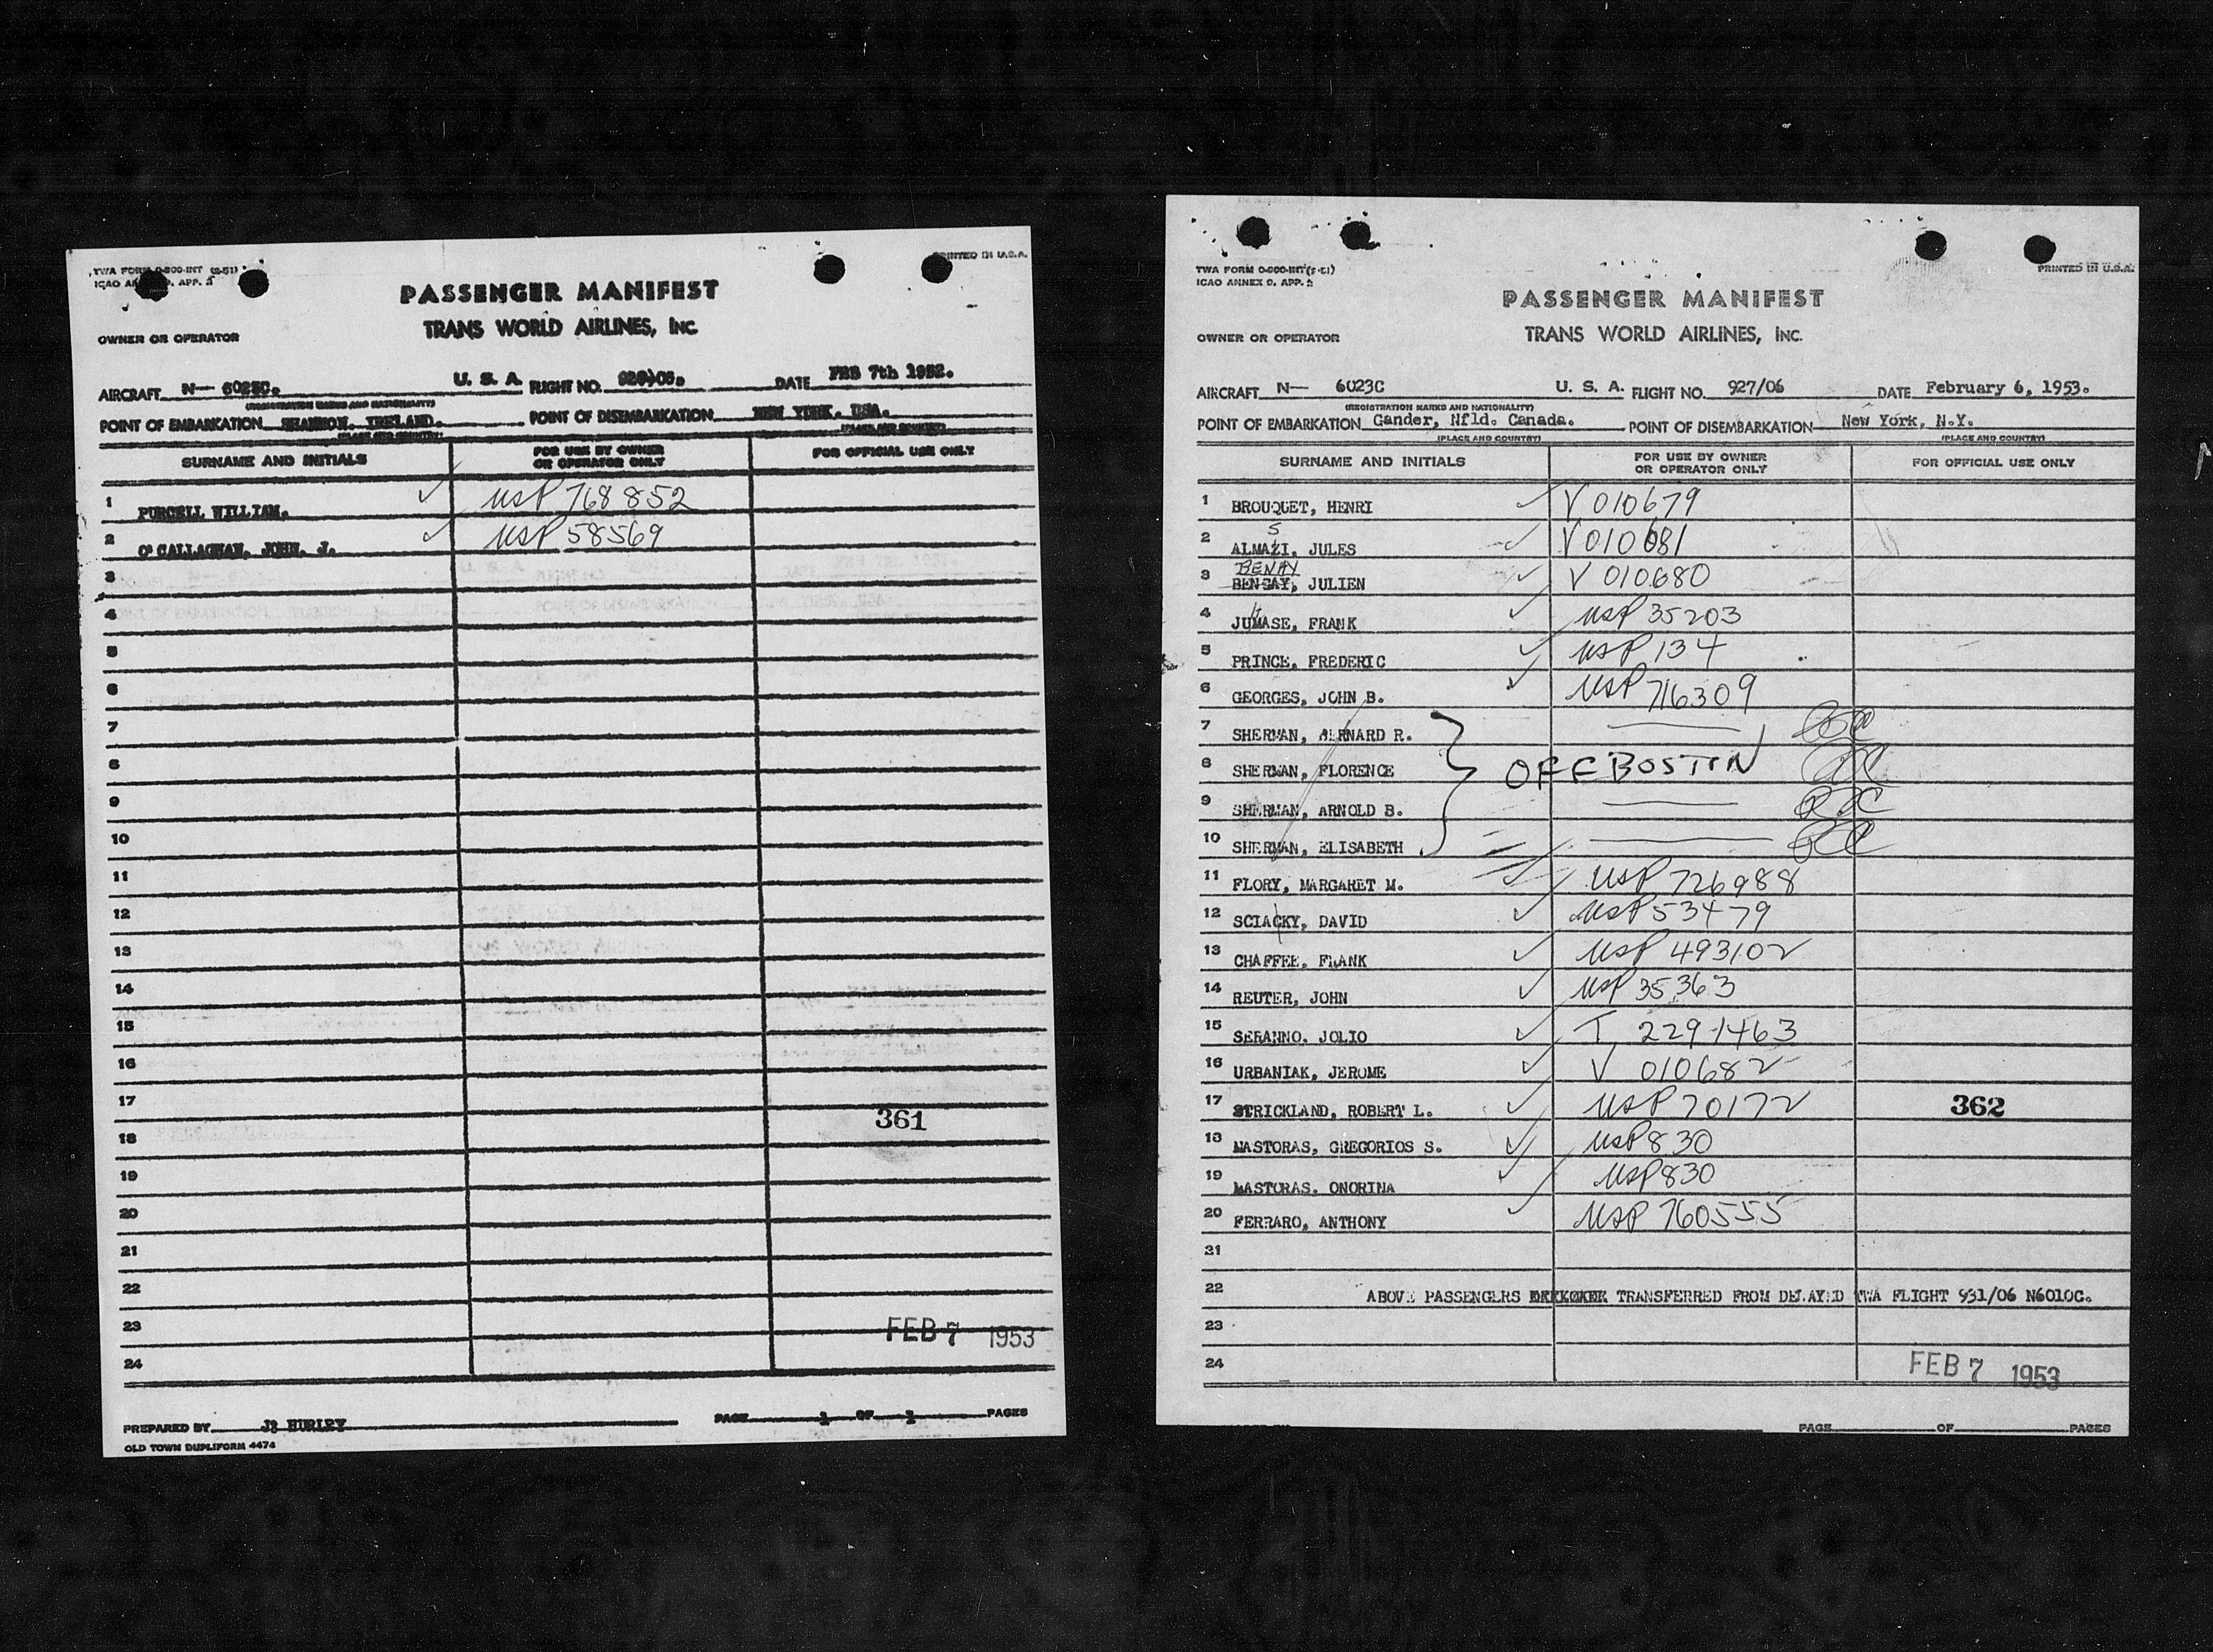 TWA FORM O-800-INT (2-51)
PRINTED IN U.S.A.
ICAO ANNEX 9, APP. 2
PASSENGER MANIFEST
TRANS WORLD AIRLINES, INC.
OWNER OR OPERATOR
AIRCRAFT N— 6023C. U. S. A. FLIGHT NO. DATE FEB 7th 1952.
(REGISTRATION MARKS AND NATIONALITY)
POINT OF EMBARKATION SHANNON, IRELAND. POINT OF DISEMBARKATION NEW YORK, USA.
(PLACE AND COUNTRY) (PLACE AND COUNTRY)
SURNAME AND INITIALS FOR USE BY OWNER OR OPERATOR ONLY FOR OFFICIAL USE ONLY
1 PURCELL WILLIAM. ✓ USP 768852
2 O'CALLAGHAN, JOHN. J. ✓ USP 58569
3
4
5
6
7
8
9
10
11
12
13
14
15
16
17
361
18
19
20
21
22
23
FEB 7 1953
24
PREPARED BY J. HURLEY PAGE 1 OF 1 PAGES
OLD TOWN DUPLIFORM 4474
TWA FORM O-800-INT (2-51)
PRINTED IN U.S.A.
ICAO ANNEX 9, APP. 2
PASSENGER MANIFEST
TRANS WORLD AIRLINES, INC.
OWNER OR OPERATOR
AIRCRAFT N— 6023C U. S. A. FLIGHT NO. 927/06 DATE February 6, 1953.
(REGISTRATION MARKS AND NATIONALITY)
POINT OF EMBARKATION Gander, Nfld. Canada. POINT OF DISEMBARKATION New York, N.Y.
(PLACE AND COUNTRY) (PLACE AND COUNTRY)
SURNAME AND INITIALS FOR USE BY OWNER OR OPERATOR ONLY FOR OFFICIAL USE ONLY
1 BROUQUET, HENRI ✓ V 010679
S
2 ALMAZI, JULES ✓ V 010681
BENAY
3 BENSAY, JULIEN ✓ V 010680
4 JUMASE, FRANK ✓ USP 35203
5 PRINCE, FREDERIC ✓ USP 134
6 GEORGES, JOHN B. ✓ USP 716309
7 SHERMAN, BERNARD R.
8 SHERMAN, FLORENCE OFF BOSTON
9 SHERMAN, ARNOLD B.
10 SHERMAN, ELISABETH
11 FLORY, MARGARET M. ✓ USP 726988
12 SCIACKY, DAVID ✓ USP 53479
13 CHAFFEE, FRANK ✓ USP 493102
14 REUTER, JOHN ✓ USP 35363
15 SERANNO. JOLIO ✓ T 2291463
16 URBANIAK, JEROME ✓ V 010682
17 STRICKLAND, ROBERT L. ✓ USP 70172 362
18 MASTORAS, GREGORIOS S. ✓ USP 830
19 MASTORAS. ONORINA ✓ USP 830
20 FERRARO, ANTHONY ✓ USP 760555
21
22 ABOVE PASSENGERS TRANSFERRED FROM DELAYED TWA FLIGHT 931/06 N6010C.
23
24 FEB 7 1953
PAGE OF PAGES